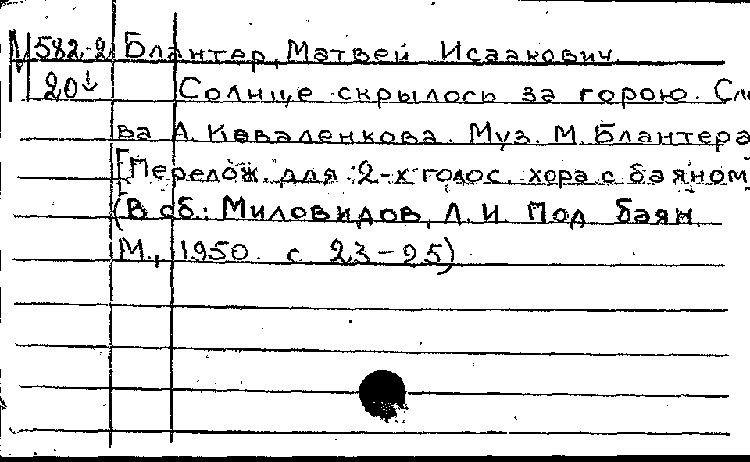 М582-2 Блантер, Матвей Исаакович.
20↓ Солнце скрылось за горою. Сло
ва А. Коваленкова. Муз. М. Блантера
[Перелож. для 2-х голос. хора с баяном]
(В сб.: Миловидов, Л. И. Под баян.
М., 1950. с. 23-25)